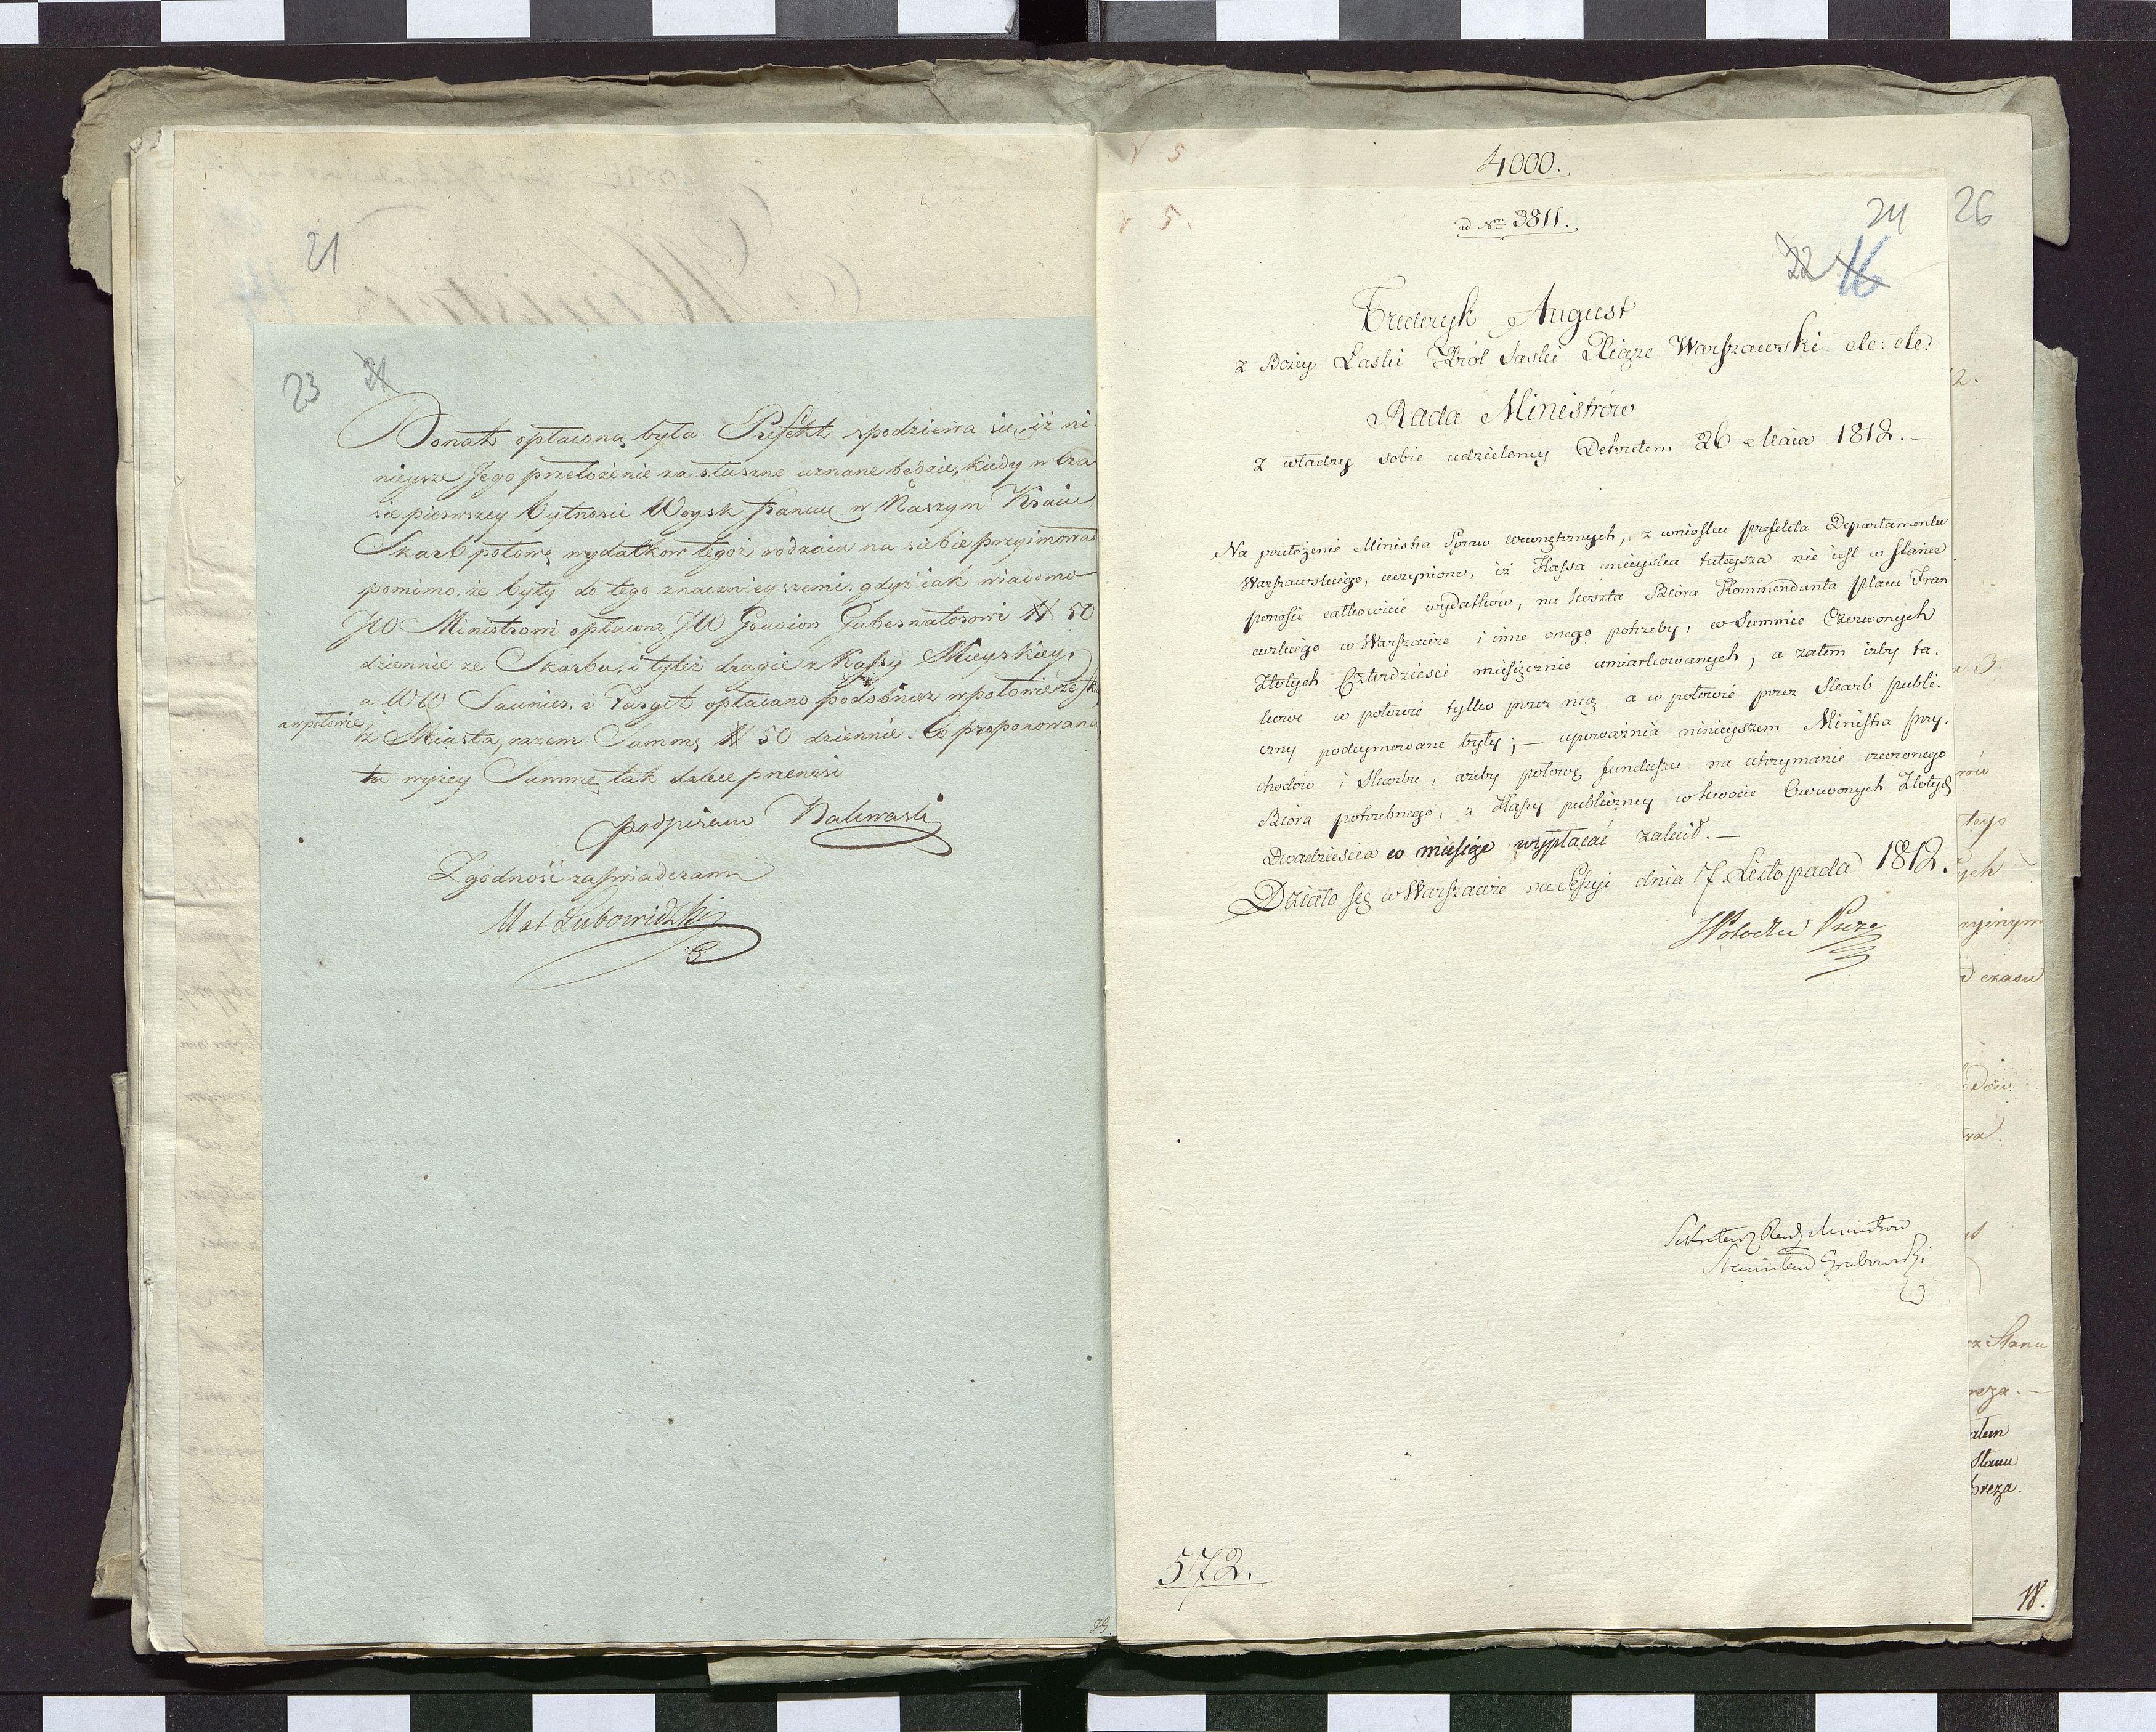 21
23 21
Donata opłaconą była. Prefekt spodziewa się, iż ni-
nieysze Jego przełożenie za słuszne uznane będzie, kiedy w cza
sie pierwszey bytności Woysk Francu: w Naszym Kraiu
Skarb połowę wydatków tegoż rodzaiu na siebie przyimował
pomimo, że były do tego znacznieyszemi, gdyż iak wiadomo
JW Ministrowi opłacono JW Gouvion Gubernatorowi # 50
dziennie ze Skarbu, i tyleż drugie z Kassy Mieyskiey,
a WW Saunier, i opłacano podobnież w połowie ze Sk:
a w połowie z Miasta, razem Summę # 50 dziennie. Co proponowaną
tu wyżey Summę tak dalece przenosi
podpisano Nakwaski
Zgodność zaświadczam
Mat Lubowidzki
4000.
ν 5
ad Nrm 3811.
ν 5.
24
26
22 16
Fryderyk August
z Bożey Łaski Król Saski Xiąże Warszawski etc: etc:
Rada Ministrów
z władzy sobie udzieloney Dekretem 26 Maia 1812. —
Na przełożenie Ministra Spraw wewnętrznych, z wniosku prefekta Departamentu
Warszawskiego, uczynione, iż Kassa mieyska tuteysza nie iest w stanie
ponosić całkowicie wydatków, na koszta Bióra Kommendanta placu Fran
cuzkiego w Warszawie i inne onego potrzeby, w Summie Czerwonych
Złotych Czterdzieści miesięcznie umiarkowanych, a zatem iżby ta-
kowe w połowie tylko przez nią a w połowie przez Skarb publi-
czny podeymowane były; — upoważnia ninieyszem Ministra przy-
chodów i Skarbu, ażeby połowę funduszu na utrzymanie rzeczonego
Bióra potrzebnego, z Kassy publiczney w kwocie Czerwonych Złotych
Dwadzieścia co miesiąc wypłacać zalecił. —
Działo się w Warszawie na Sessyi dnia 7 Listopada 1812.
Sekretarz Rady Ministrów
Stanisław Grabowski
572.
18.